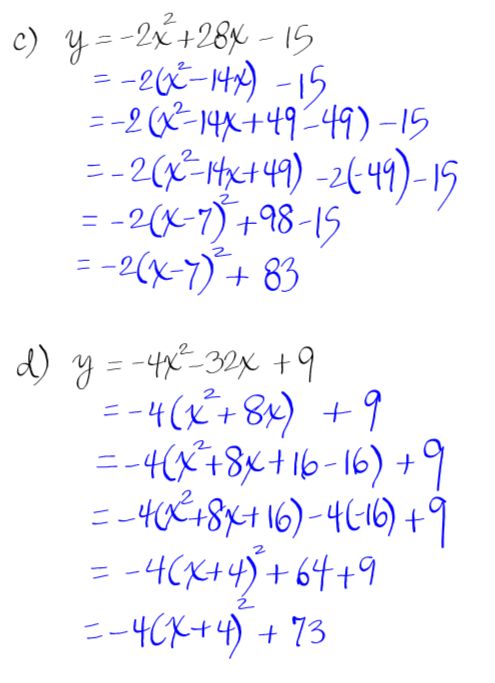 c) y = -2x²+28x - 15
= -2(x²-14x) -15
= -2(x²-14x+49-49) -15
= -2(x²-14x+49) -2(-49)-15
= -2(x-7)²+98-15
= -2(x-7)²+ 83
d) y = -4x²-32x +9
= -4(x²+8x) + 9
= -4(x²+8x+16-16) +9
= -4(x²+8x+16)-4(-16)+9
= -4(x+4)²+64+9
= -4(x+4)² + 73